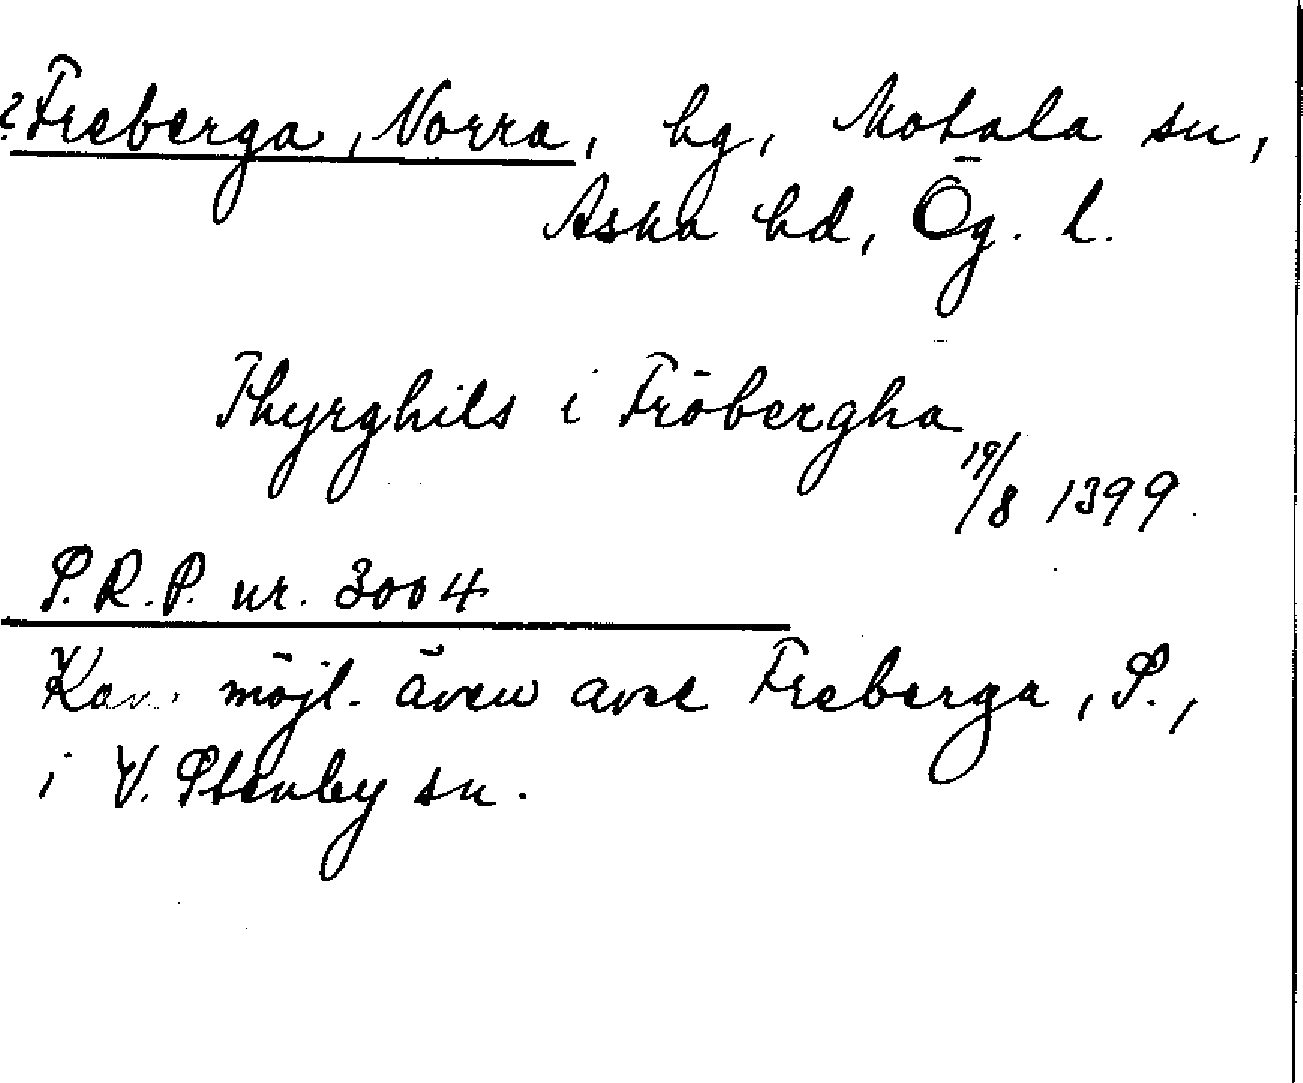 ?Freberga, Norra, hg, Motala sn,
Aska hd, Ög. l.
Thyrghils i Fröbergha
19/8 1399.
S.R.P. nr. 3004
Kan möjl. även avse Freberga, S.,
i V. Stenby sn.